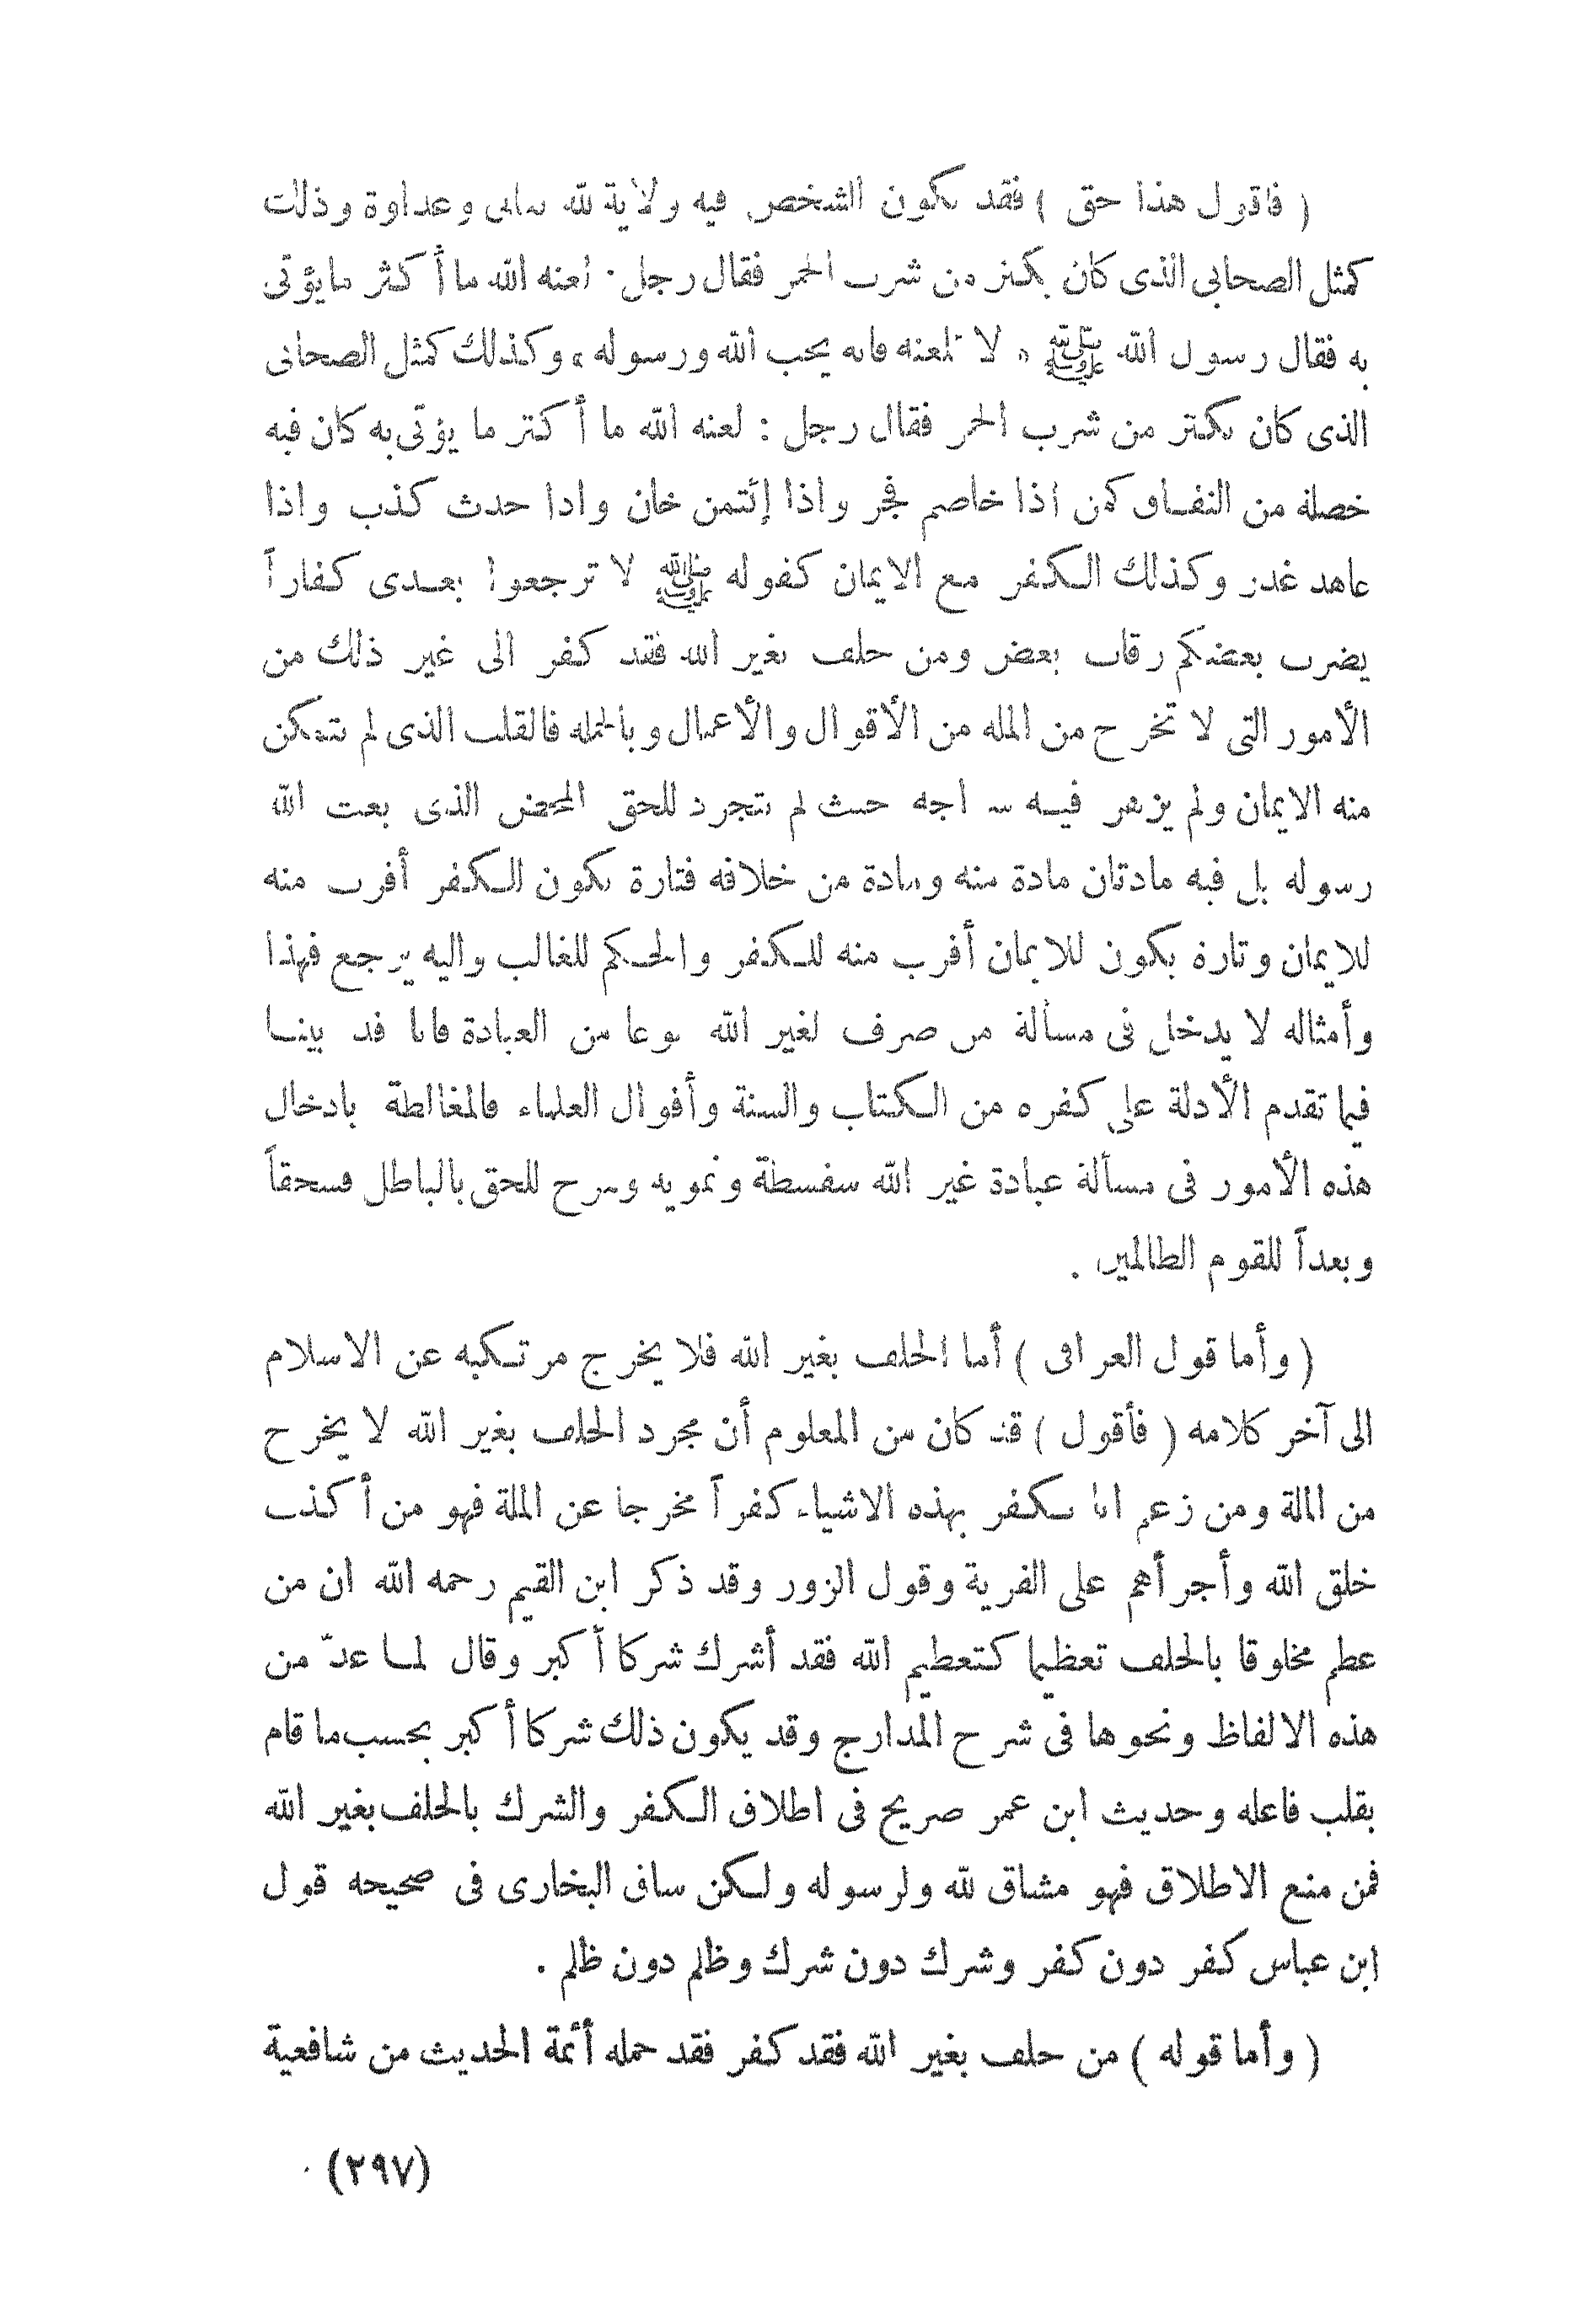 ( فاقول هذا حق ) فقد يكون الشخص فيه ولاية لله تعالى وعداوة وذلك
كمثل الصحابى الذى كان يكثر من شرب الخمر فقال رجل لعنه الله ما أكثر ما يؤتى
به فقال رسول الله ﷺ « لا تلعنه فانه يحب الله ورسوله » وكذلك كمثل الصحابى
الذى كان يكثر من شرب الخمر فقال رجل : لعنه الله ما أكثر ما يؤتى به كان فيه
خصلة من النفاق كمن اذا خاصم فجر واذا إئتمن خان واذا حدث كذب واذا
عاهد غدر وكذلك الكفر مع الايمان كقوله ﷺ لا ترجعوا بعدى كفاراً
يضرب بعضكم رقاب بعض ومن حلف بغير الله فقد كفر الى غير ذلك من
الأمور التى لا تخرج من الملة من الأقوال والأعمال وبالجملة فالقلب الذى لم يتمكن
منه الايمان ولم يزهر فيه سراجه حيث لم يتجرد للحق المحض الذى بعث الله
رسوله بل فيه مادتان مادة منه ومادة من خلافه فتارة يكون للكفر أقرب منه
للايمان وتارة يكون للايمان أقرب منه للكفر والحكم للغالب واليه يرجع فهذا
وأمثاله لا يدخل فى مسألة من صرف لغير الله نوعا من العبادة فانا قد بينا
فيما تقدم الأدلة على كفره من الكتاب والسنة وأقوال العلماء فالمغالطة بادخال
هذه الأمور فى مسألة عبادة غير الله سفسطة وتمويه ومزج للحق بالباطل فسحقاً
وبعداً للقوم الظالمين .
( وأما قول العراقى ) أما الحلف بغير الله فلا يخرج مرتكبه عن الاسلام
الى آخر كلامه ( فأقول ) قد كان من المعلوم أن مجرد الحلف بغير الله لا يخرج
من الملة ومن زعم انا نكفر بهذه الاشياء كفراً مخرجا عن الملة فهو من أكذب
خلق الله وأجرأهم على الفرية وقول الزور وقد ذكر ابن القيم رحمه الله ان من
عظم مخلوقا بالحلف تعظيما كتعظيم الله فقد أشرك شركا أكبر وقال لما عدّ من
هذه الالفاظ ونحوها فى شرح المدارج وقد يكون ذلك شركا أكبر بحسب ما قام
بقلب فاعله وحديث ابن عمر صريح فى اطلاق الكفر والشرك بالحلف بغير الله
فمن منع الاطلاق فهو مشاق لله ولرسوله ولكن ساق البخارى فى صحيحه قول
ابن عباس كفر دون كفر وشرك دون شرك وظلم دون ظلم .
( وأما قوله ) من حلف بغير الله فقد كفر فقد حمله أئمة الحديث من شافعية
(٢٩٧)